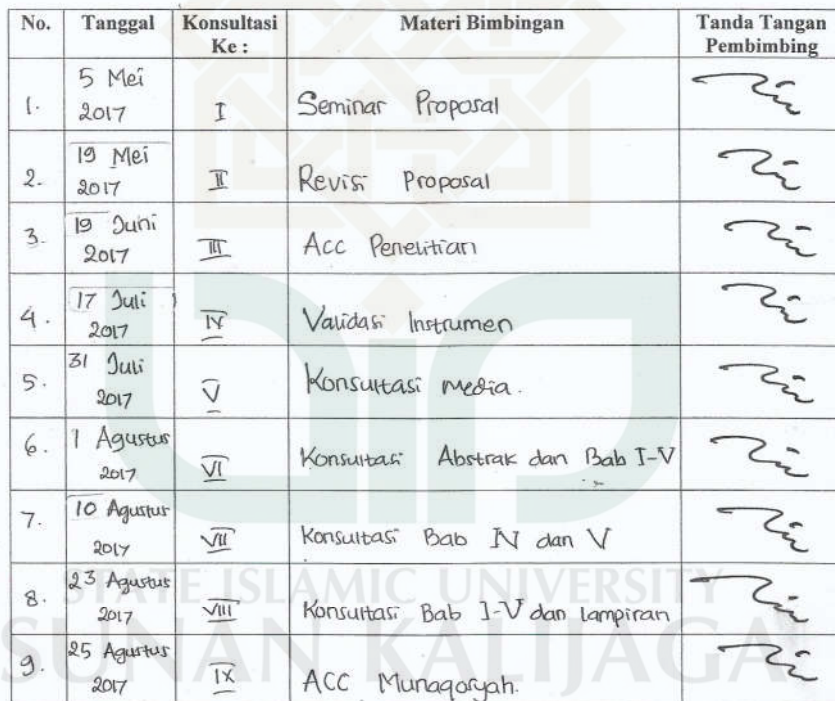 No. Tanggal Konsultasi Ke : Materi Bimbingan Tanda Tangan Pembimbing
1. 5 Mei 2017 I Seminar Proposal
2. 19 Mei 2017 II Revisi Proposal
3. 19 Juni 2017 III Acc Penelitian
4. 17 Juli 2017 IV Validasi Instrumen
5. 31 Juli 2017 V Konsultasi media.
6. 1 Agustus 2017 VI Konsultasi Abstrak dan Bab I-V
7. 10 Agustus 2017 VII Konsultasi Bab IV dan V
8. 23 Agustus 2017 VIII Konsultasi Bab I-V dan lampiran
9. 25 Agustus 2017 IX ACC Munaqosyah.
STATE ISLAMIC UNIVERSITY
SUNAN KALIJAGA